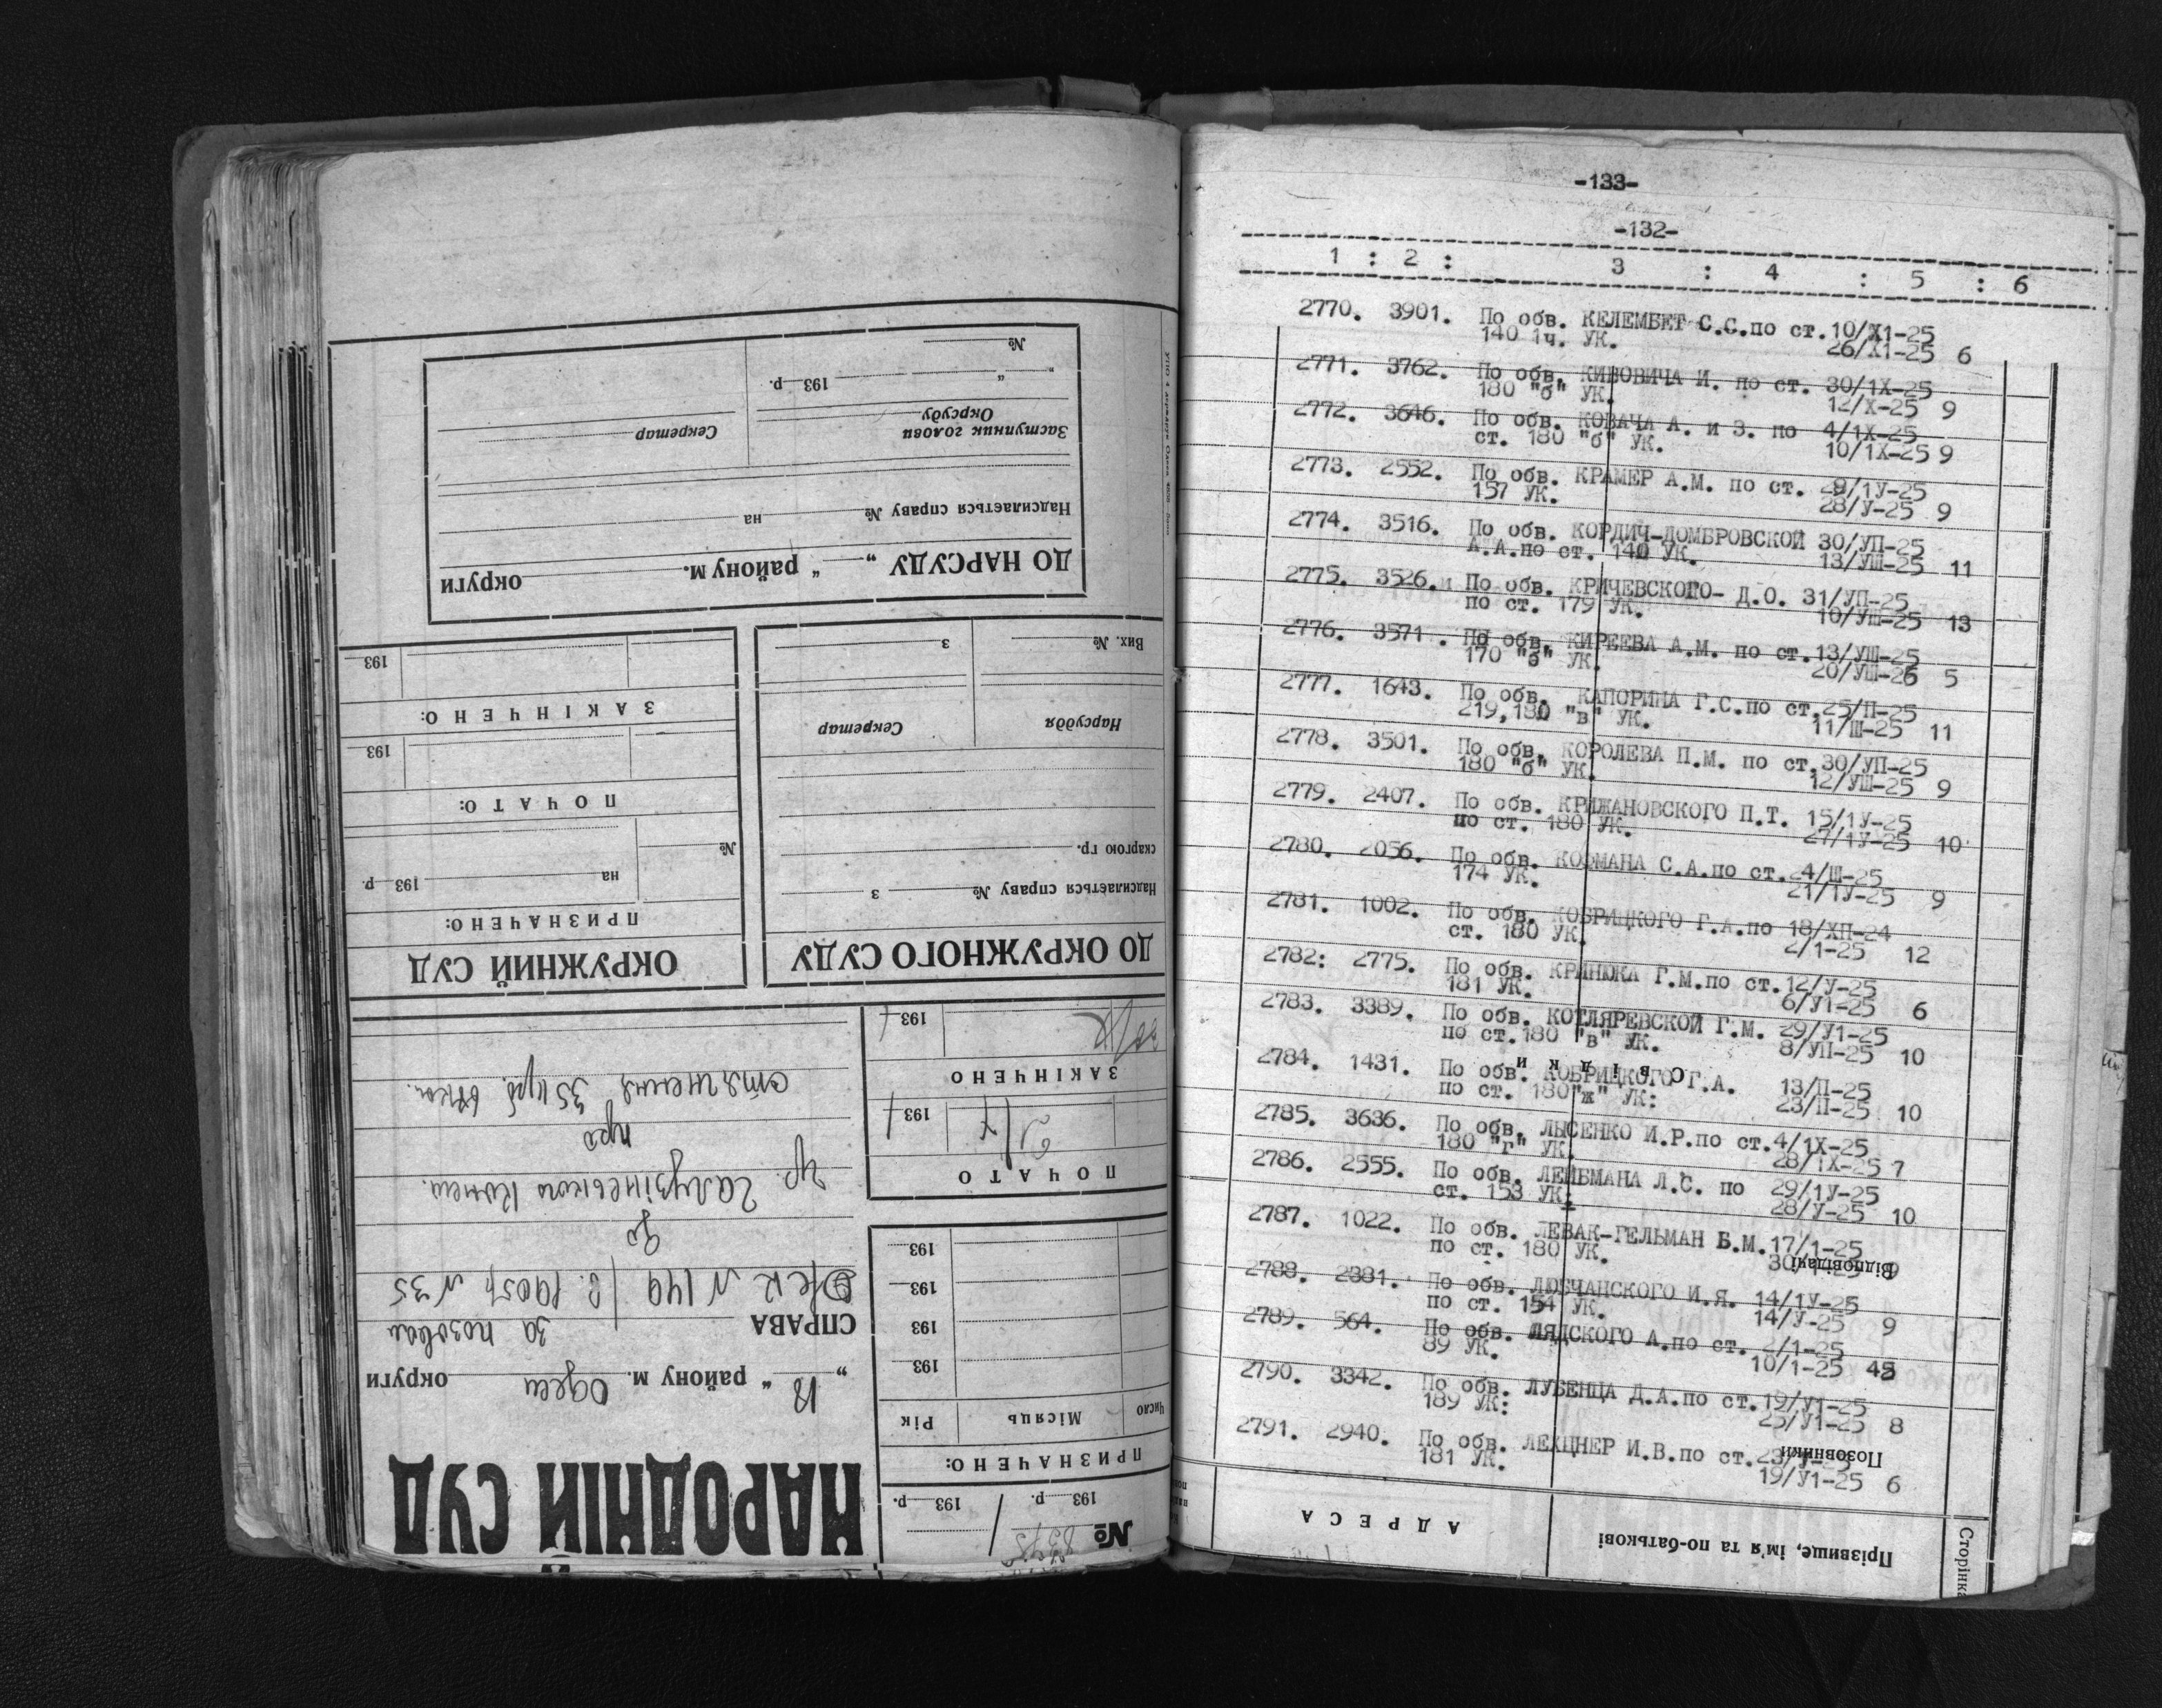 НАРОДНІЙ СУД
"12" району м. Одеси округи
СПРАВА за позовом
до
про
№
193 р. 193 р.
ПРИЗНАЧЕНО:
Число Місяць Рік
193
193
193
193
ПОЧАТО
193
ЗАКІНЧЕНО
193
ДО ОКРУЖНОГО СУДУ
Надсилається справу № з
скаргою гр.
Нарсуддя Секретар
Вих. № з
ОКРУЖНИЙ СУД
ПРИЗНАЧЕНО:
на 193 р.
№
ПОЧАТО:
193
ЗАКІНЧЕНО:
193
ДО НАРСУДУ „ " району м. округи
Надсилається справу № на
Заступник голови
Окрсуду Секретар
„ " 193 р.
№
-133-
-132-
1 : 2 : 3 : 4 : 5 : 6
2770. 3901. По обв. КЕЛЕМБЕТ С.С.по ст.10/Х1-25
140 1ч. УК. 26/Х1-25 6
2771. 3762. По обв. КИБОВИЧА И. по ст. 30/1Х-25
180 "б" УК. 12/Х-25 9
2772. 3646. По обв. КОВАЧА А. и З. по 4/1Х-25
ст. 180 "б" УК. 10/1Х-25 9
2773. 2552. По обв. КРАМЕР А.М. по ст. 29/1У-25
157 УК. 28/У-25 9
2774. 3516. По обв. КОРДИЧ-ДОМБРОВСКОЙ 30/УП-25
А.А.по ст. 140 УК. 13/УШ-25 11
2775. 3526.и По обв. КРИЧЕВСКОГО- Д.О. 31/УП-25
по ст. 179 УК. 10/УШ-25 13
2776. 3571. По обв. КИРЕЕВА А.М. по ст.13/УШ-25
170 "б" УК. 20/УШ-26 5
2777. 1643. По обв. КАПОРИНА Г.С.по ст.25/П-25
219,180 "в" УК. 11/Ш-25 11
2778. 3501. По обв. КОРОЛЕВА П.М. по ст.30/УП-25
180 "б" УК. 12/УШ-25 9
2779. 2407. По обв. КРИЖАНОВСКОГО П.Т. 15/1У-25
по ст. 180 УК. 27/1У-25 10
2780. 2056. По обв. С.А.по ст.24/Ш-25
174 УК. 21/1У-25 9
2781. 1002. По обв. КОБРИЦКОГО Г.А.по 18/ХП-24
ст. 180 УК. 2/1-25 12
2782: 2775. По обв. КРИНЮКА Г.М.по ст.12/У-25
181 УК. 6/У1-25 6
2783. 3389. По обв. КОТЛЯРЕВСКОЙ Г.М. 29/У1-25
по ст.180 "в" УК. 8/УП-25 10
2784. 1431. По обв. КОБРИЦКОГО Г.А. 13/П-25
по ст. 180"ж" УК: 23/П-25 10
2785. 3636. По обв. ЛЫСЕНКО И.Р.по ст.4/1Х-25
180 "г" УК. 28/1Х-25 7
2786. 2555. По обв. ЛЕЙБМАНА Л.С. по 29/1У-25
ст. 153 УК: 28/У-25 10
2787. 1022. По обв. ЛЕВАК-ГЕЛЬМАН Б.М.17/1-25
по ст. 180 УК. 30/1-25 9
2788. 2381. По обв. ЛЮБЧАНСКОГО И.Я. 14/1У-25
по ст. 154 УК. 14/У-25 9
2789. 564. По обв. ЛЯДСКОГО А.по ст. 2/1-25
89 УК. 10/1-25
2790. 3342. По обв. ЛУБЕНЦА Д.А.по ст.19/У1-25
189 УК: 25/У1-25 8
2791. 2940. По обв. ЛЕХЦНЕР И.В.по ст.23/У-25
181 УК. 19/У1-25 6
Свідки
Відповідачі
Позовники
Сторінка
Прізвище, ім'я та по-батькові
АДРЕСА